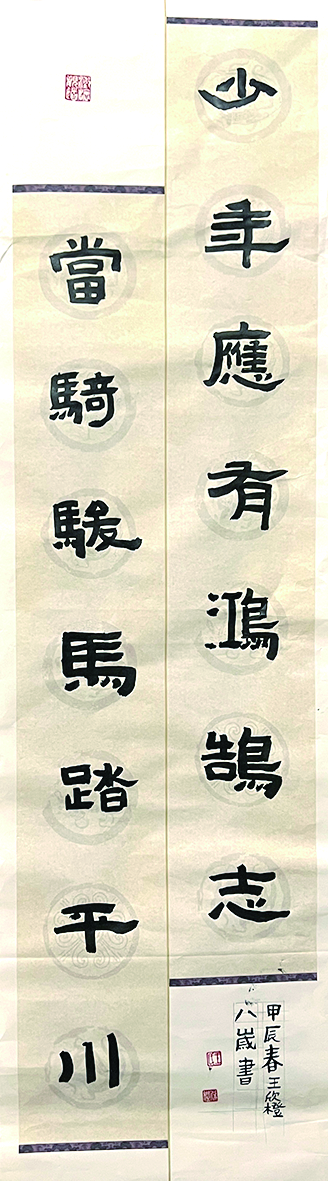 少年應有鴻鵠志
當騎駿馬踏平川
甲辰春王欣橙
八歲書